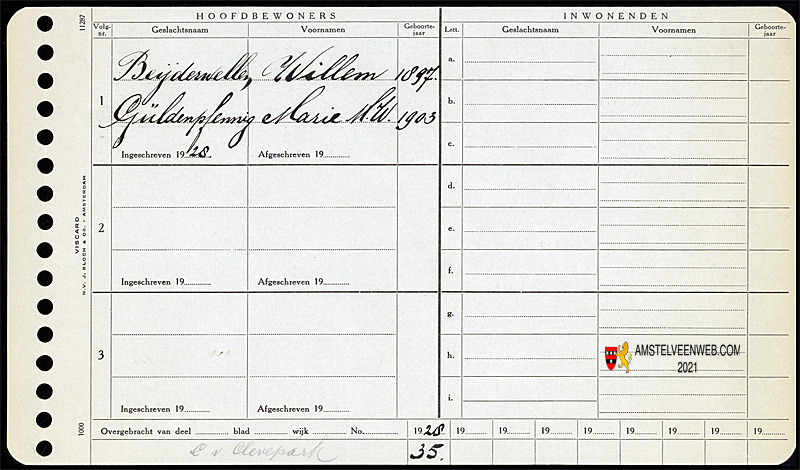 HOOFDBEWONERS
INWONENDEN
Volg-nr. Geslachtsnaam Voornamen Geboorte-jaar
Lett. Geslachtsnaam Voornamen Geboorte-jaar
11287
1
Beijderwellen, Willem 1897.
Güldenpfennig Marie M.W. 1903
Ingeschreven 1928. Afgeschreven 19
2
Ingeschreven 19 Afgeschreven 19
3
Ingeschreven 19 Afgeschreven 19
a.
b.
c.
d.
e.
f.
g.
h.
i.
VISCARD
N.V. J. BLOCH & CO. - AMSTERDAM
1000
AMSTELVEENWEB.COM
2021
Overgebracht van deel blad wijk No. 1928 19 19 19 19 19 19 19 19
C v Clevepark 35.